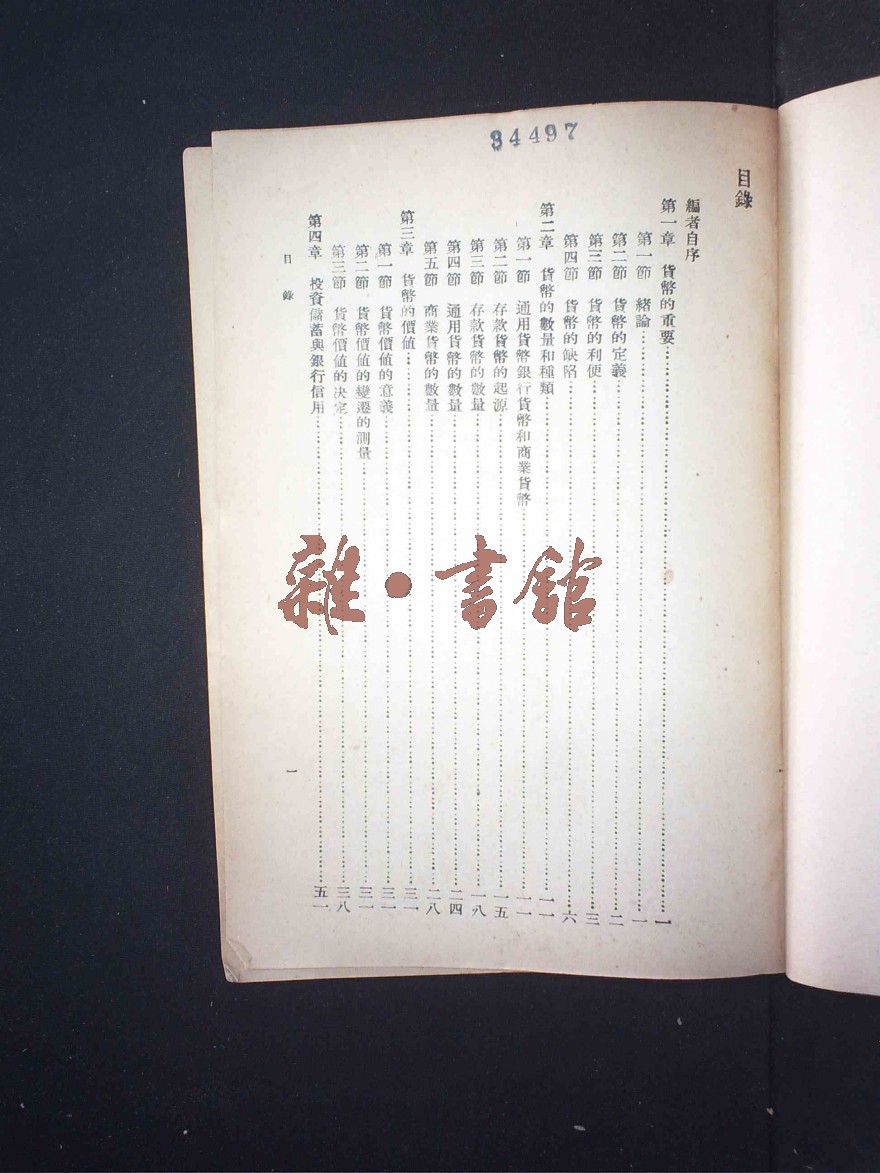 34497
目錄
編者自序
第一章 貨幣的重要……一
第一節 緒論……一
第二節 貨幣的定義……二
第三節 貨幣的利便……三
第四節 貨幣的缺陷……六
第二章 貨幣的數量和種類……一一
第一節 通用貨幣銀行貨幣和商業貨幣……一一
第二節 存款貨幣的起源……一五
第三節 存款貨幣的數量……一八
第四節 通用貨幣的數量……二四
第五節 商業貨幣的數量……二八
第三章 貨幣的價值……三一
第一節 貨幣價值的意義……三一
第二節 貨幣價值的變遷的測量……三一
第三節 貨幣價值的決定……三八
第四章 投資儲蓄與銀行信用……五一
目錄
一
雜·書館